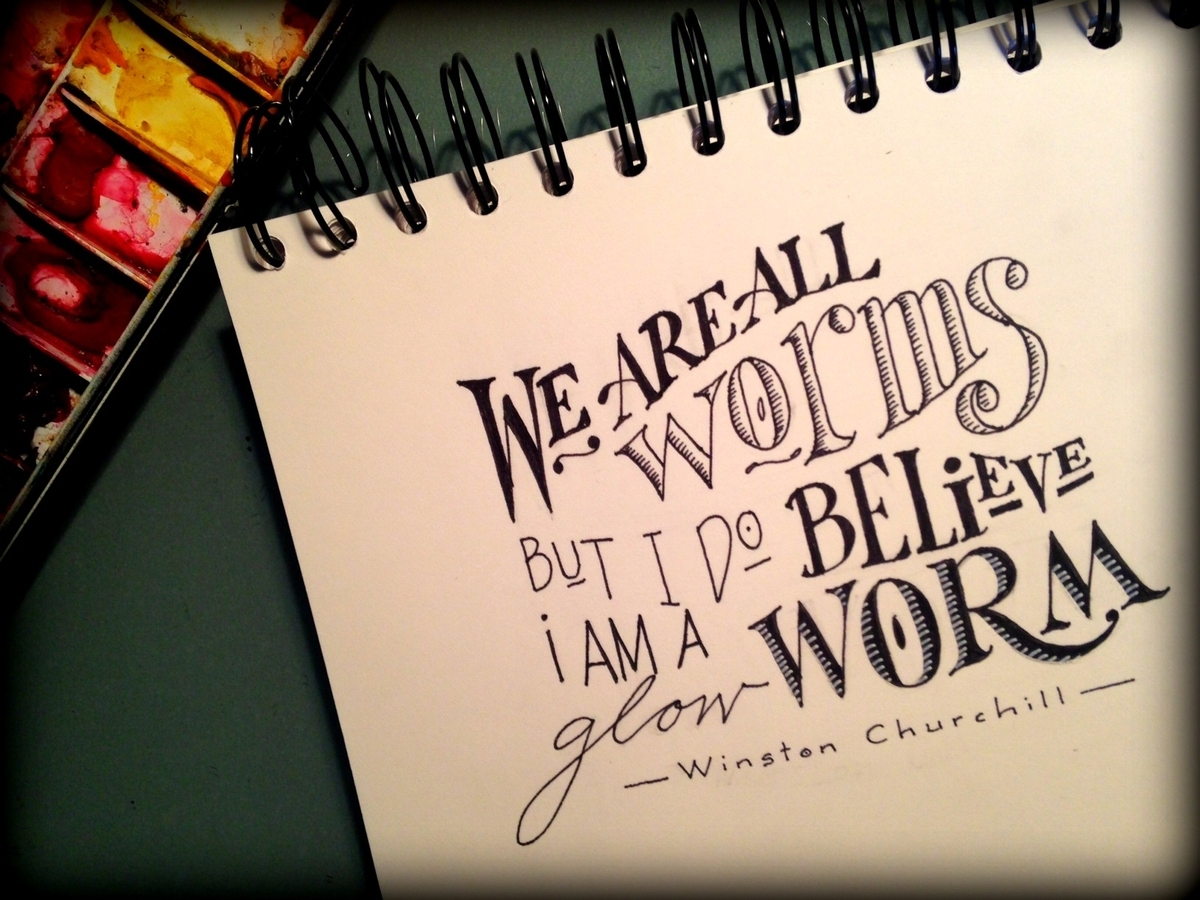 WE ARE ALL
worms
BUT I DO BELiEVE
i AM A
glow WORM
— Winston Churchill —